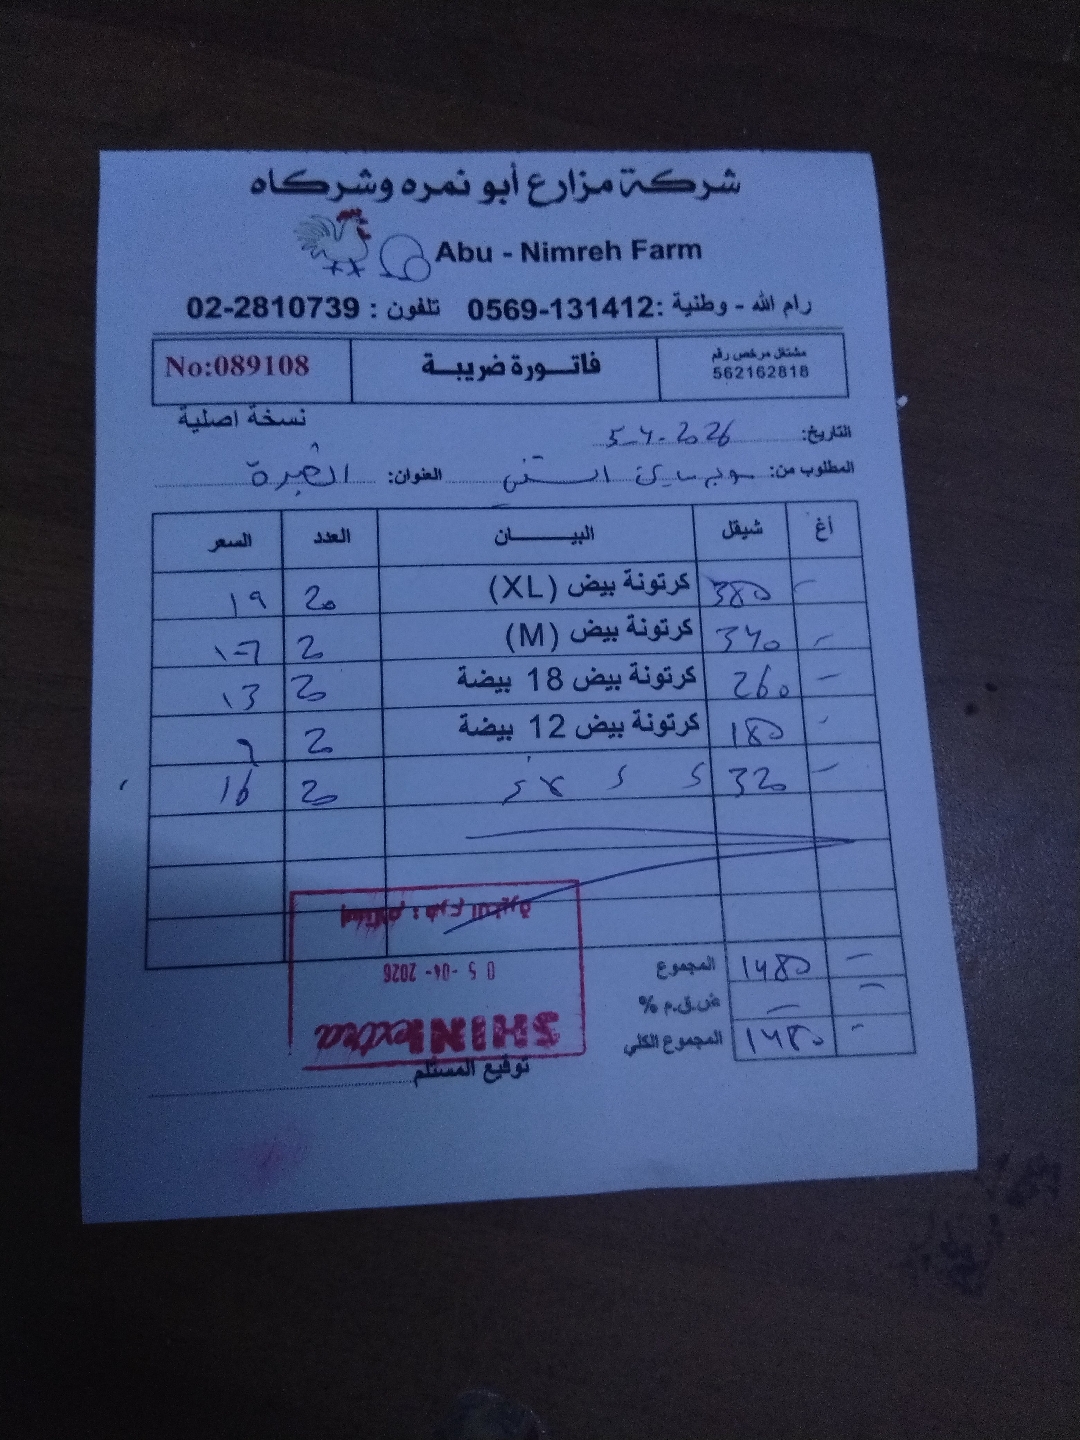 شركة مزارع أبو نمره وشركاه
Abu - Nimreh Farm
رام الله - وطنية :0569-131412 تلفون : 02-2810739
مشتغل مرخص رقم
562162818
فاتـــورة ضريبــة
No:089108
نسخة اصلية
التاريخ: 5-4-2026
المطلوب من: العنوان:
أغ شيقل البيــــــان العدد السعر
380 كرتونة بيض (XL) 20 19
340 كرتونة بيض (M) 20 17
260 كرتونة بيض 18 بيضة 20 13
180 كرتونة بيض 12 بيضة 20 9
320 20 16
المجموع 1480
ض.ق.م %
المجموع الكلي 1480
SHINI extra
05-04-2026
توقيع المستلم